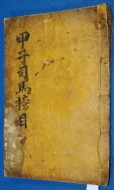 甲子司馬榜目